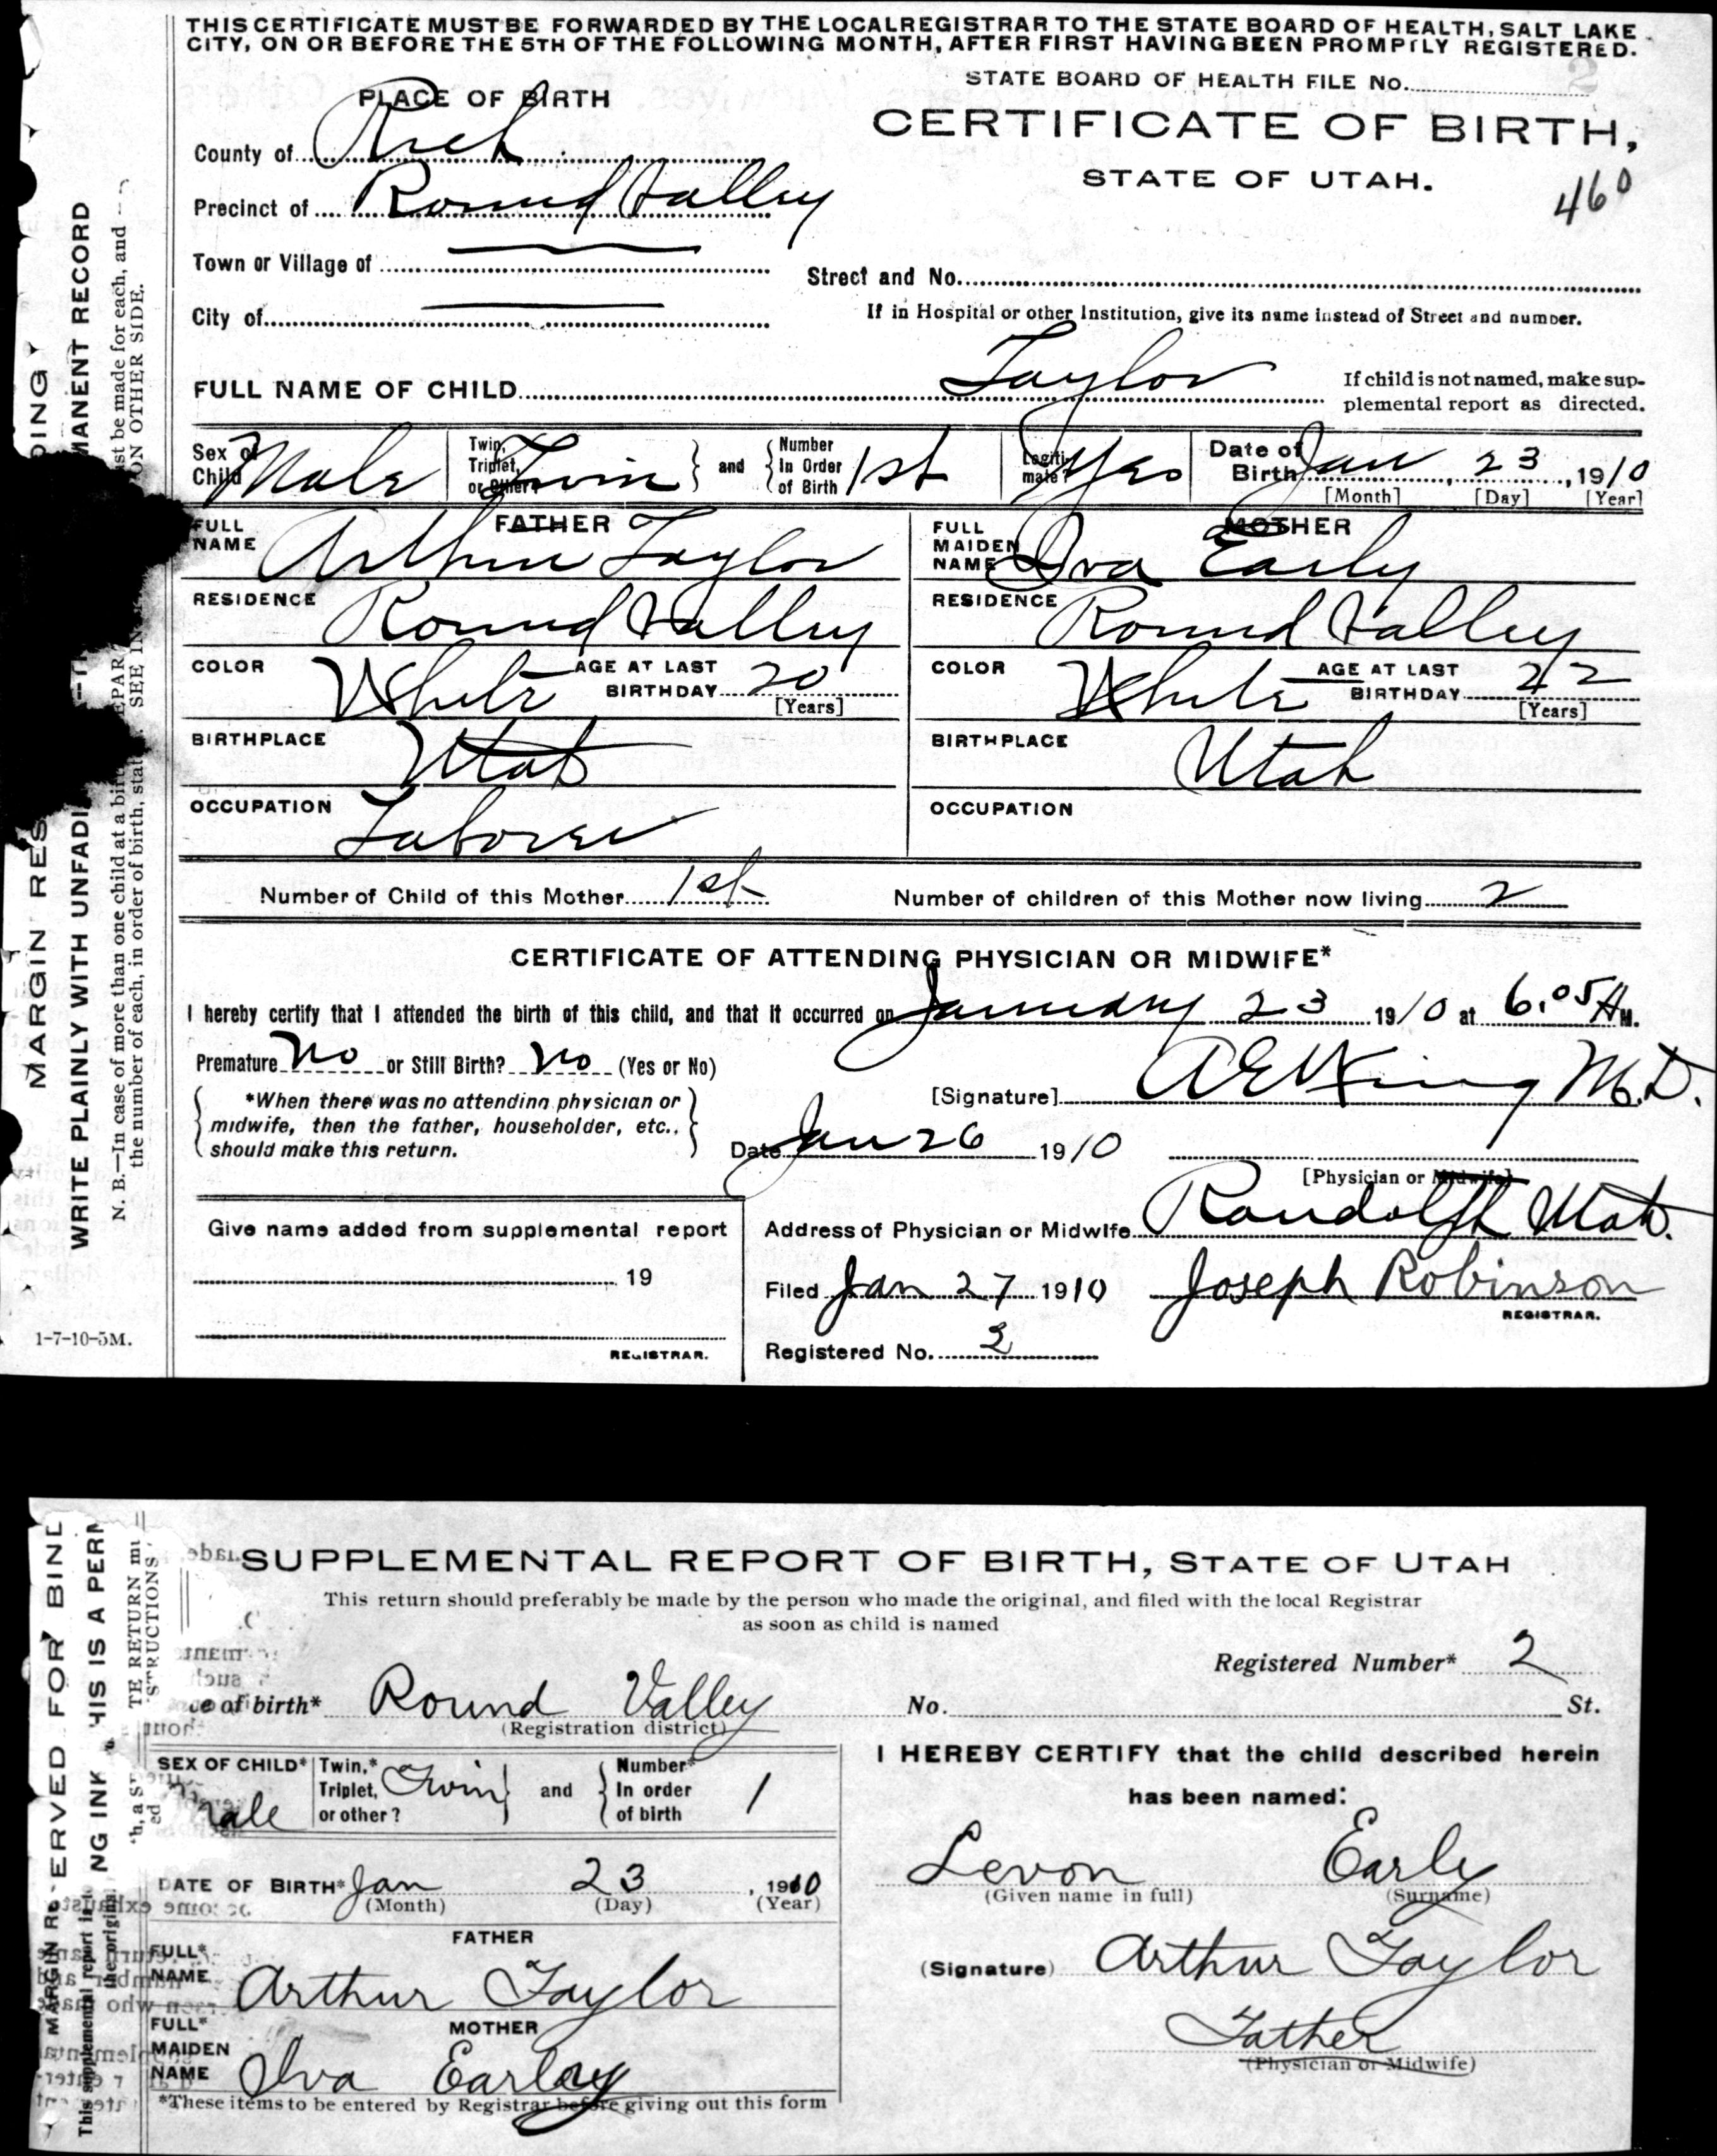 THIS CERTIFICATE MUST BE FORWARDED BY THE LOCAL REGISTRAR TO THE STATE BOARD OF HEALTH, SALT LAKE
CITY, ON OR BEFORE THE 5TH OF THE FOLLOWING MONTH, AFTER FIRST HAVING BEEN PROMPTLY REGISTERED.
STATE BOARD OF HEALTH FILE No. 2
PLACE OF BIRTH
CERTIFICATE OF BIRTH,
STATE OF UTAH.
460
County of Rich
Precinct of Round Valley
Town or Village of
Street and No.
City of
If in Hospital or other Institution, give its name instead of Street and number.
FULL NAME OF CHILD Taylor
If child is not named, make sup-
plemental report as directed.
Sex of Child Male Twin, Triplet, or Other? Twin and Number In Order of Birth 1st Legiti-mate? Yes Date of Birth Jan 23, 1910
[Month] [Day] [Year]
FATHER MOTHER
FULL NAME Arthur Taylor FULL MAIDEN NAME Iva Early
RESIDENCE Round Valley RESIDENCE Round Valley
COLOR White AGE AT LAST BIRTHDAY 20 [Years] COLOR White AGE AT LAST BIRTHDAY 22 [Years]
BIRTHPLACE Utah BIRTHPLACE Utah
OCCUPATION Laborer OCCUPATION
Number of Child of this Mother 1st Number of children of this Mother now living 2
CERTIFICATE OF ATTENDING PHYSICIAN OR MIDWIFE*
I hereby certify that I attended the birth of this child, and that it occurred on January 23 1910 at 6.05 A M.
Premature No or Still Birth? No (Yes or No)
[Signature] M.D.
*When there was no attending physician or
midwife, then the father, householder, etc.,
should make this return.
Date Jan 26 1910
[Physician or Midwife]
Give name added from supplemental report
Address of Physician or Midwife Randolph Utah.
19
Filed Jan 27 1910 Joseph Robinson
REGISTRAR.
REGISTRAR.
Registered No. 2
1-7-10-5M.
MARGIN RES
DING
WRITE PLAINLY WITH UNFADI
MANENT RECORD
N. B.—In case of more than one child at a bir
st be made for each, and
the number of each, in order of birth, stat
SEE IN
ON OTHER SIDE.
SUPPLEMENTAL REPORT OF BIRTH, STATE OF UTAH
This return should preferably be made by the person who made the original, and filed with the local Registrar
as soon as child is named
Registered Number* 2
ce of birth* Round Valley No. St.
(Registration district)
SEX OF CHILD* Male Twin,* Triplet, or other? Twin and Number* In order of birth 1
I HEREBY CERTIFY that the child described herein
has been named:
Levon Early
(Given name in full) (Surname)
DATE OF BIRTH* Jan 23, 1910
(Month) (Day) (Year)
FATHER
FULL* NAME Arthur Taylor
(Signature) Arthur Taylor
Father
(Physician or Midwife)
MOTHER
FULL* MAIDEN NAME Iva Earley
*These items to be entered by Registrar before giving out this form
ERVED FOR BIND
MARGIN R
NG INK
HIS IS A PERM
This supplemental report
the origin
TE RETURN
STRUCTIONS